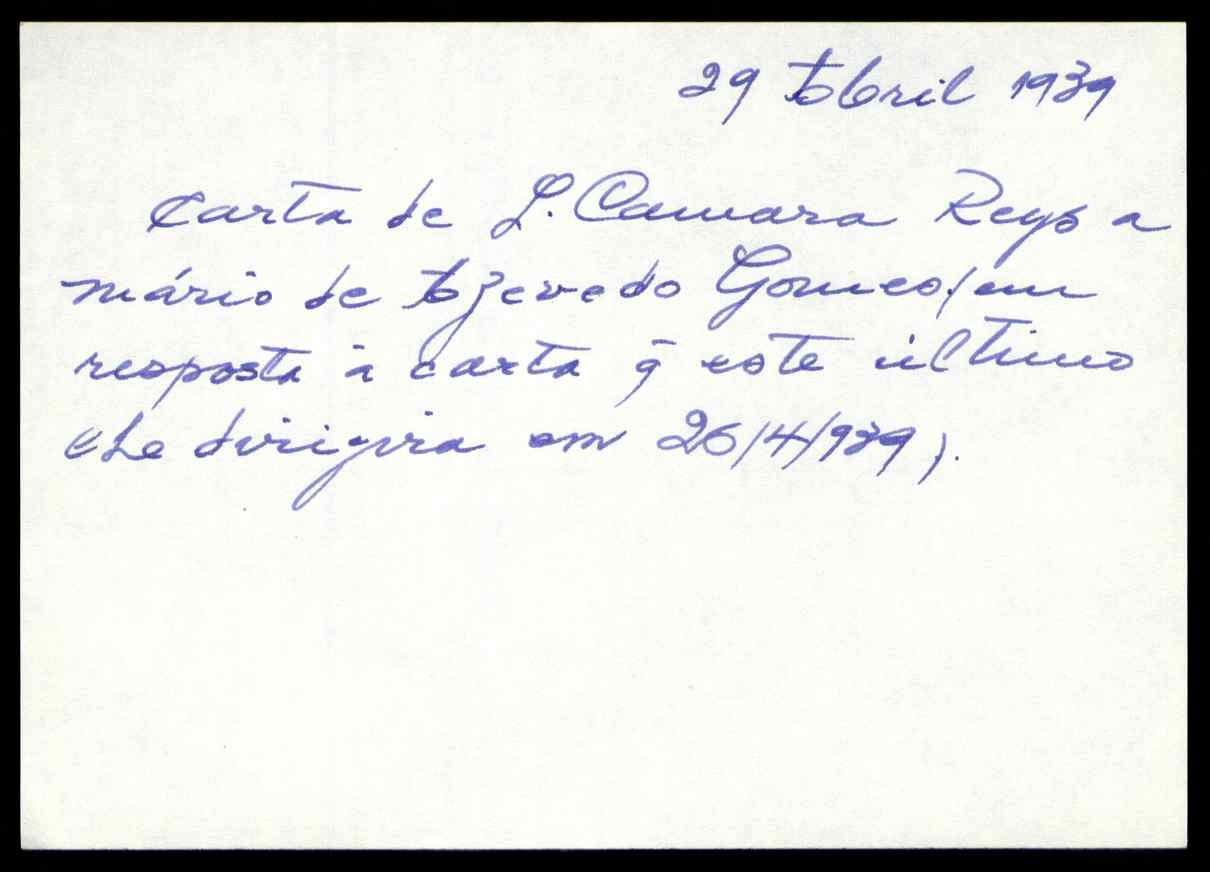 29 Abril 1939
Carta de L. Camara Reys a
Mário de Azevedo Gomes (em
resposta à carta q̃ este último
lhe dirigira em 26/4/939).